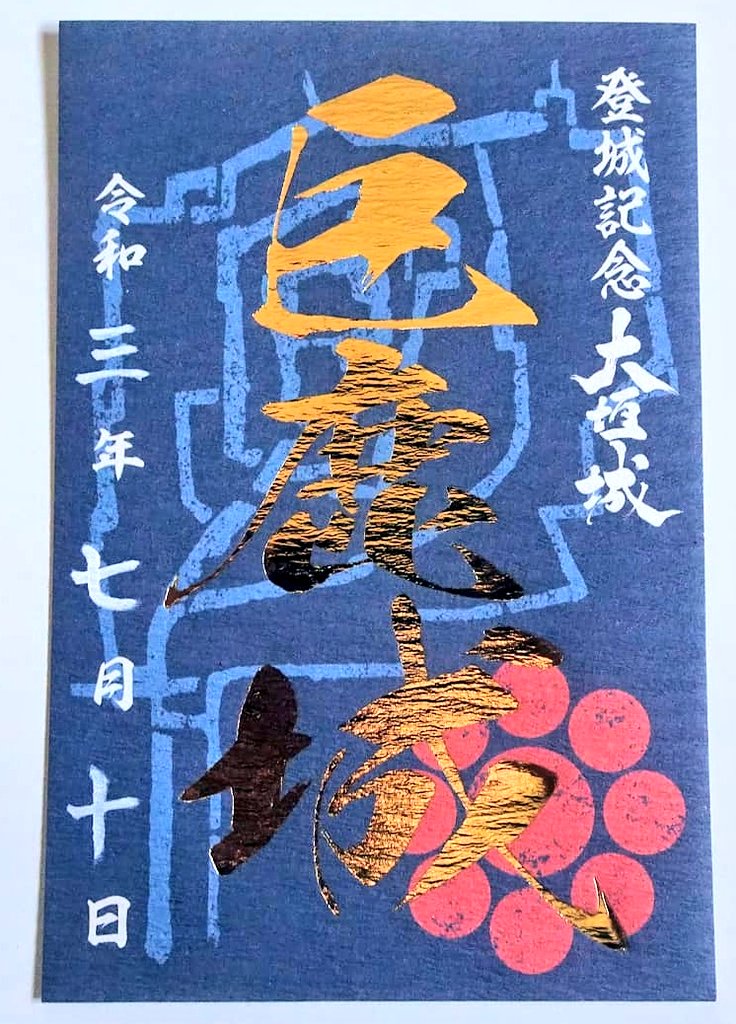 登城記念 大垣城
巨鹿城
令和三年七月十日